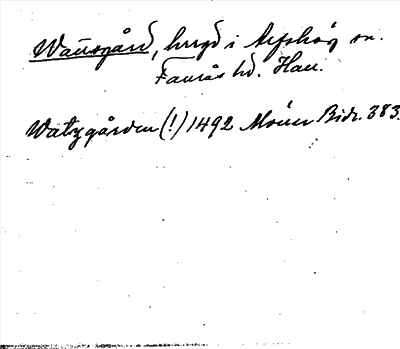 Wannsgård, hmgd i Alfshög sn.
Faurås hd. Hall.
Watzgården (!) 1492 Mörner Bidr. 383.